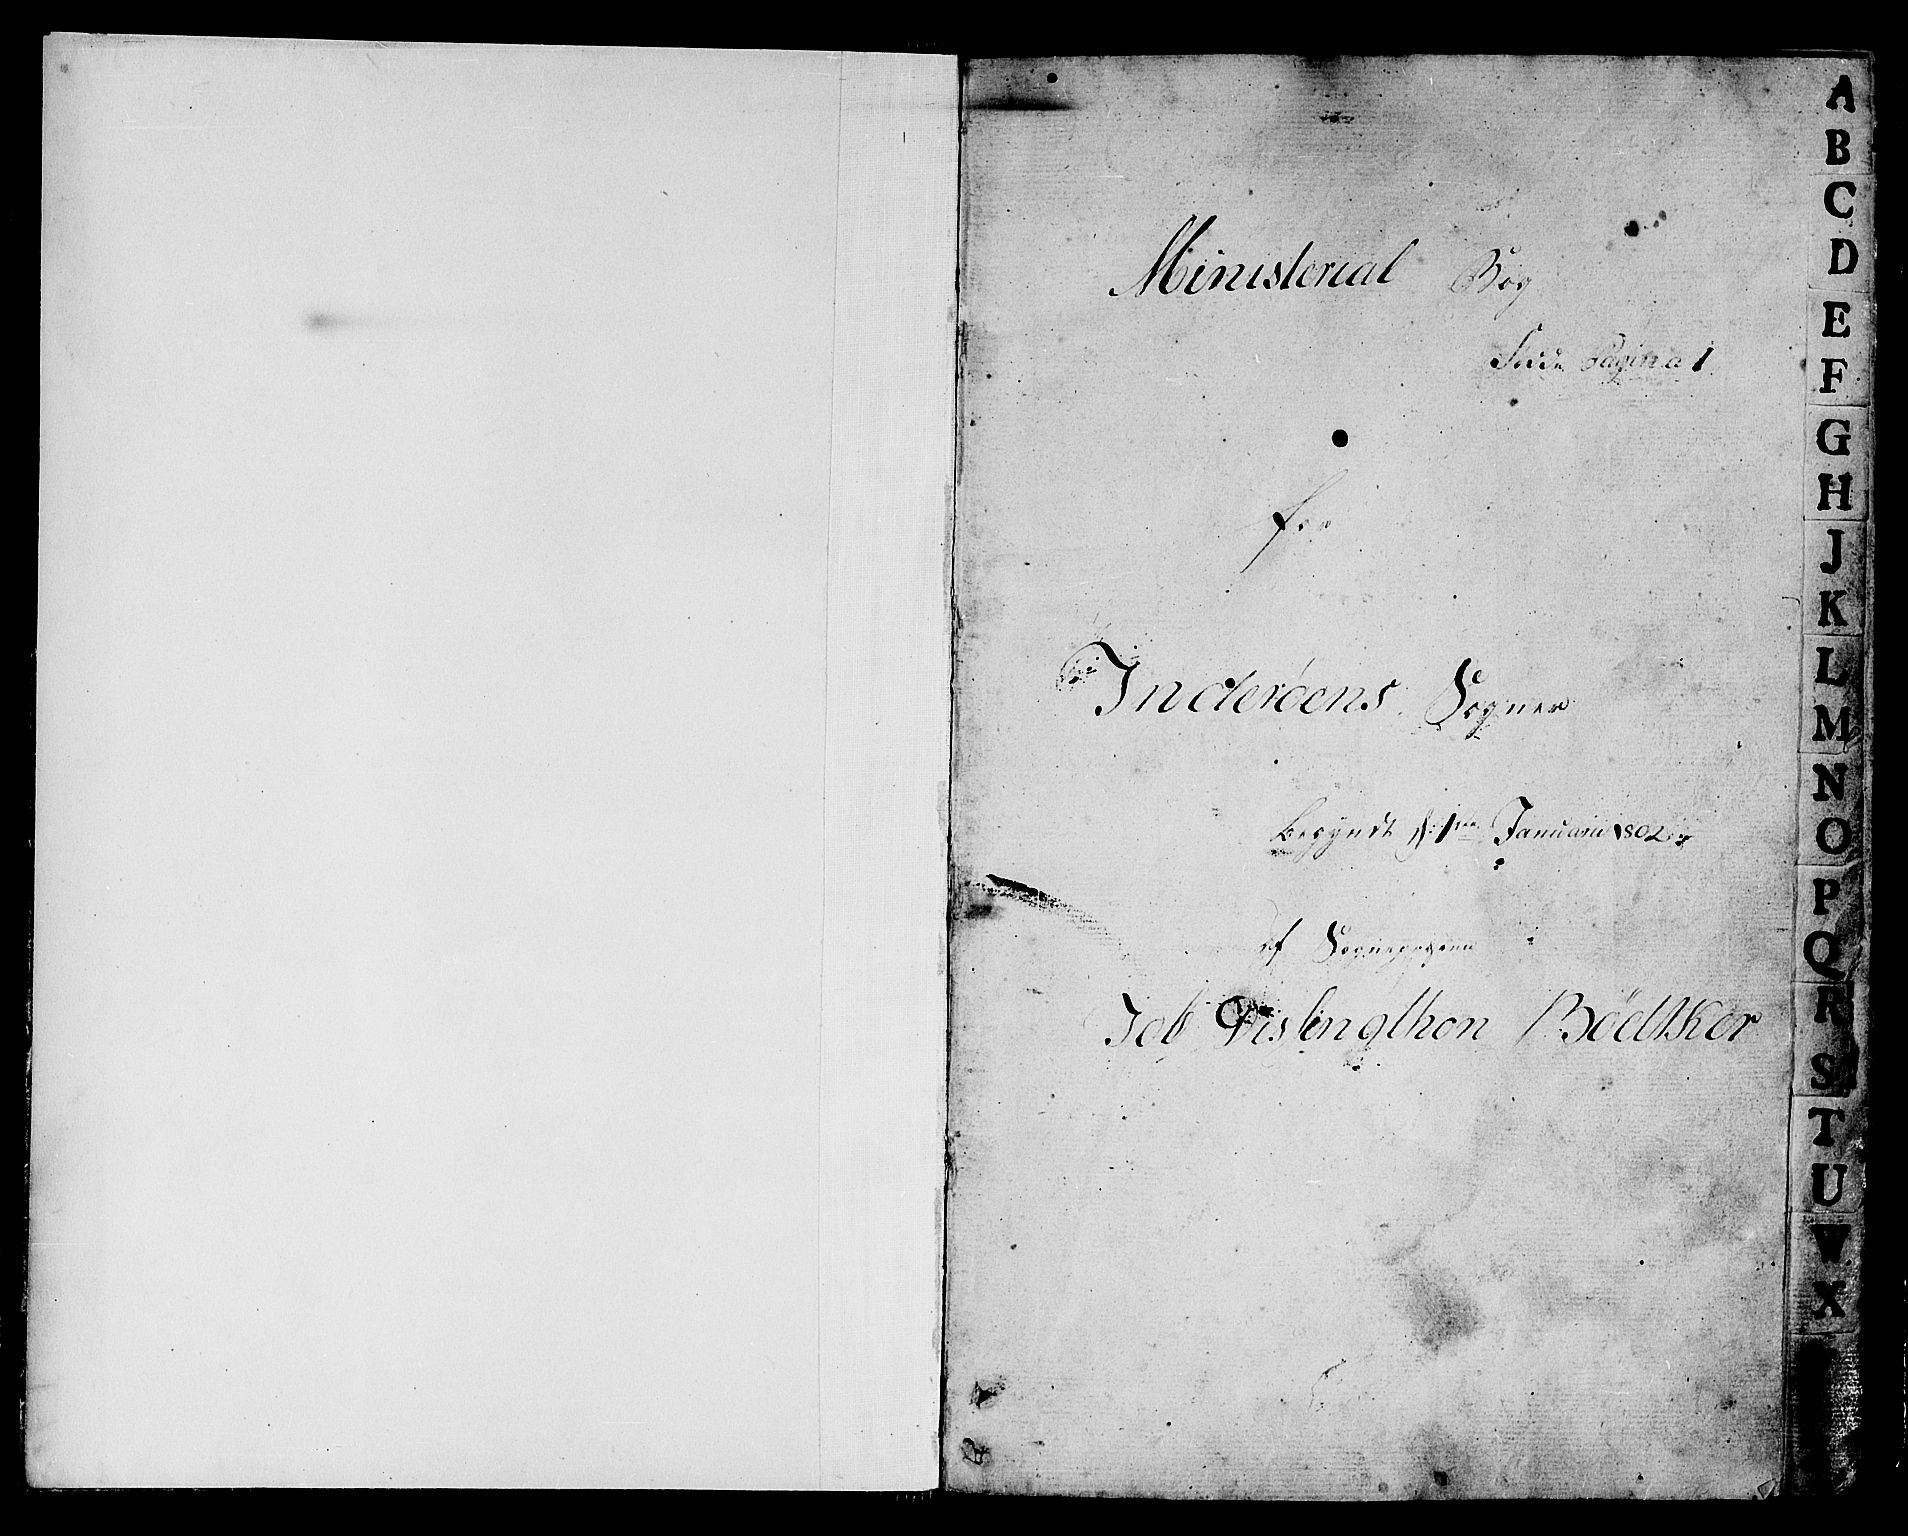 Ministerial Bog
Side Pagina 1
for
Inderöens Sogner
begyndt d: 1te Januarii 1802
af Sognepræsten
Job Dislingthon Bödtker
A
B
C
D
E
F
G
H
J
K
L
M
N
O
P
Q
R
S
T
U
V
X